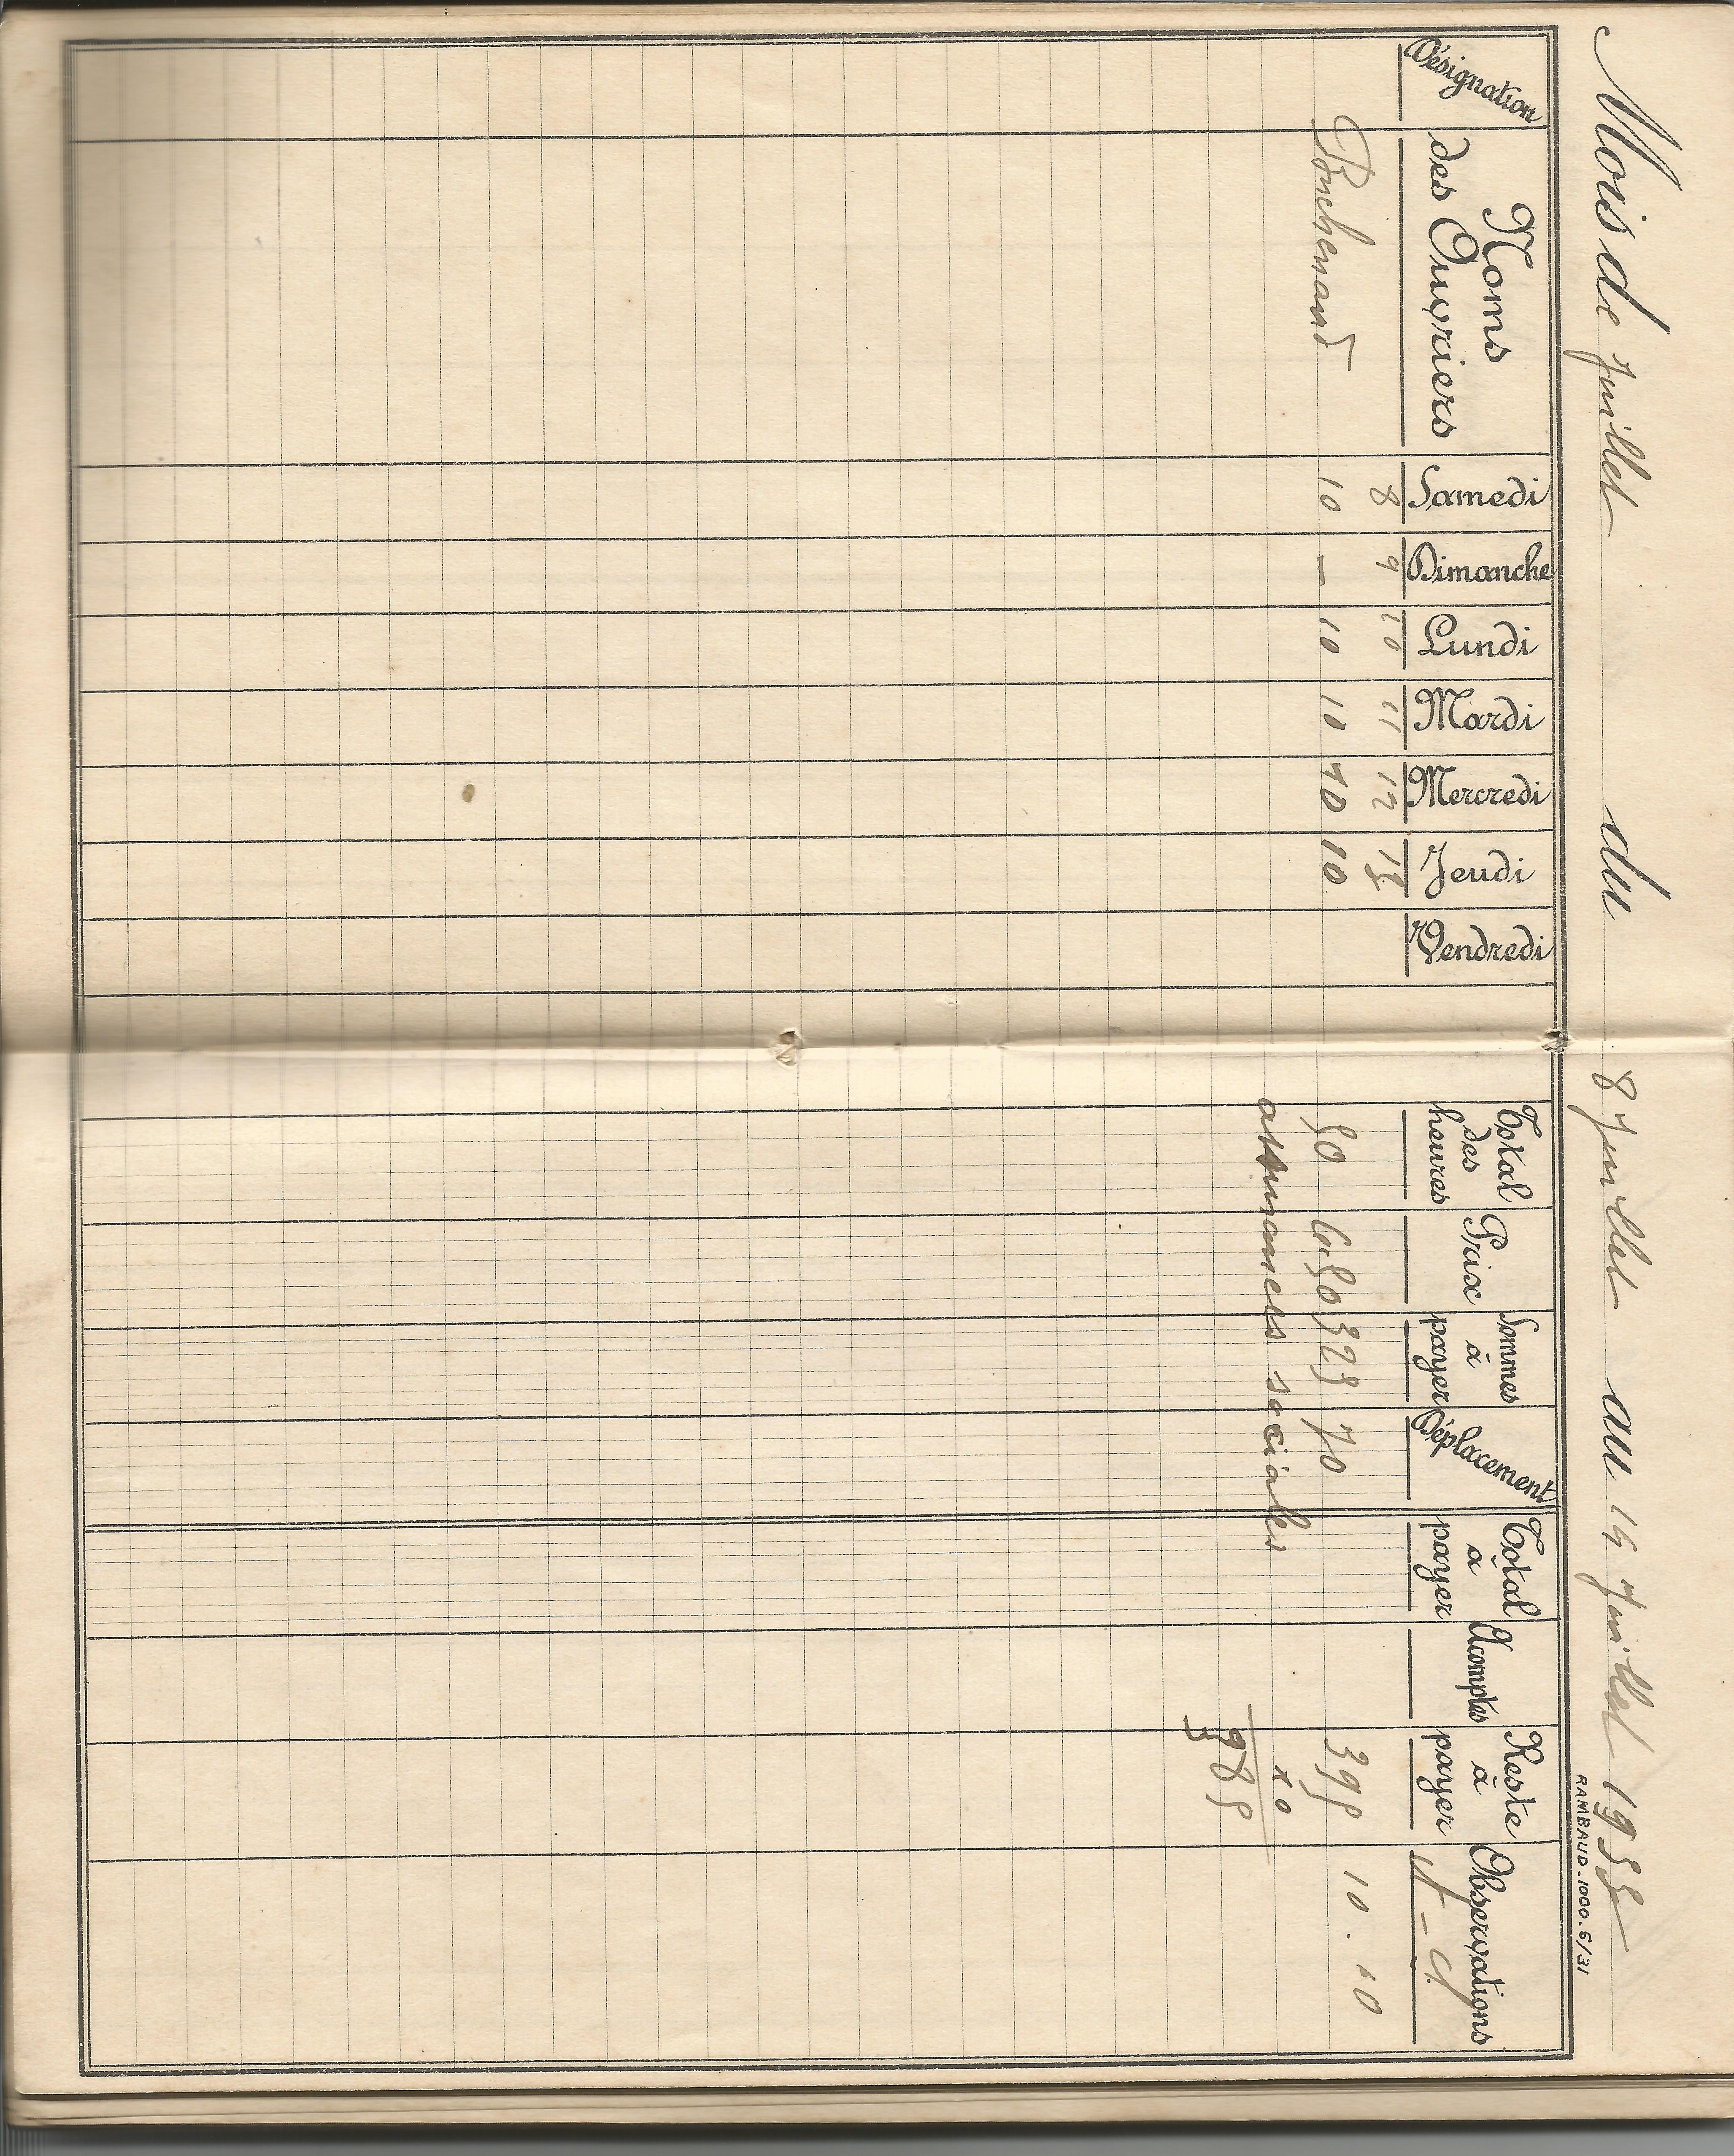 Mois de Juillet du 8 Juillet au 14 Juillet 1933
RAMBAUD.1000.6/31
Désignation Noms des Ouvriers Samedi Dimanche Lundi Mardi Mercredi Jeudi Vendredi Total des heures Prix Sommes à payer Déplacement Total à payer Acomptes Reste à payer Observations
8 9 10 11 12 13
10 — 10 10 10 10 50 6.50 325 70 395 10.10
sociales 10
385